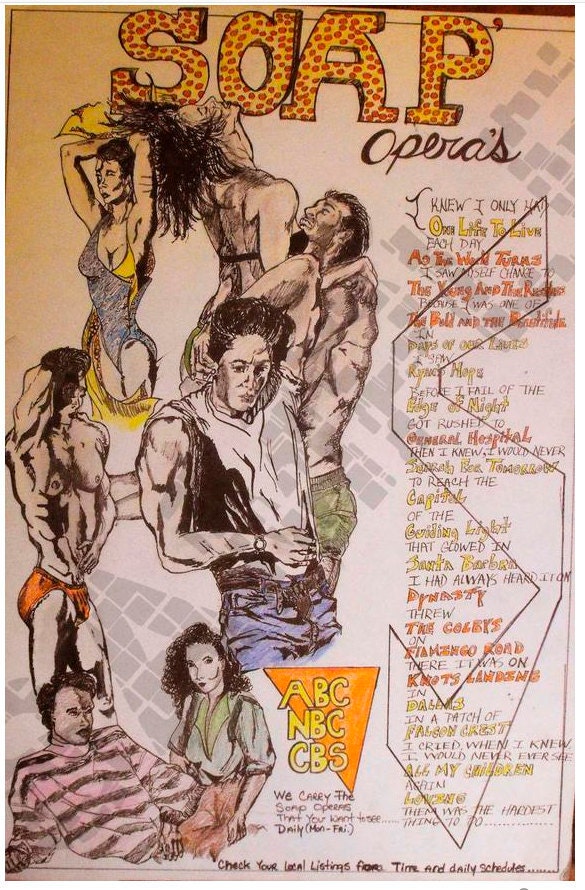 SOAP'
Opera's
I KNEW I ONLY HAD
One Life To Live
EACH DAY
As The World Turns
I SAW MYSELF CHANGE TO
The Young And The Restless
BECAUSE I WAS ONE OF
The Bold and the Beautiful
IN
Days of our Lives
I SAW
Ryan's Hope
BEFORE I FAIL OF THE
Edge of Night
GOT RUSHED TO
General Hospital
THEN I KNEW, I WOULD NEVER
Search For Tomorrow
TO REACH THE
Capital
OF THE
Guiding Light
THAT GLOWED IN
Santa Barbra
I HAD ALWAYS HEARD IT ON
DYNASTY
THREW
THE COLBYS
ON
FLAMINGO ROAD
THERE IT WAS ON
KNOTS LANDING
IN
DALLAS
IN A PATCH OF
FALCON CREST
I CRIED, WHEN I KNEW
I WOULD NEVER EVER SEE
ALL MY CHILDREN
AGAIN
LOVING
THEM WAS THE HARDEST
THING TO DO
ABC
NBC
CBS
We CARRY The
Soap Operas
That You Want to see......
Daily (Mon-Fri.)
Check Your Local Listings for Time and daily Schedules......